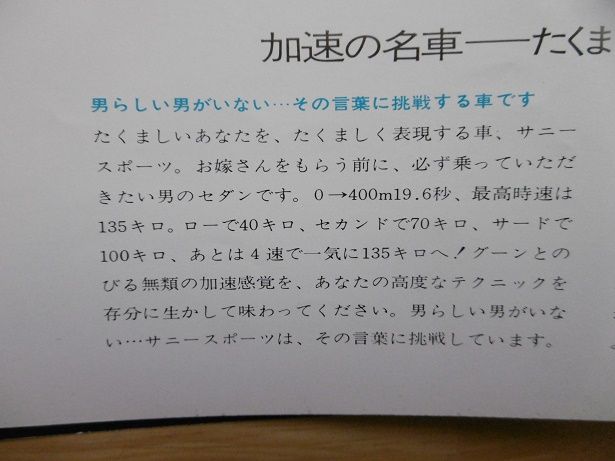 加速の名車──たくま
男らしい男がいない…その言葉に挑戦する車です
たくましいあなたを、たくましく表現する車、サニー
スポーツ。お嫁さんをもらう前に、必ず乗っていただ
きたい男のセダンです。0→400m19.6秒、最高時速は
135キロ。ローで40キロ、セカンドで70キロ、サードで
100キロ、あとは4速で一気に135キロへ!グーンとの
びる無類の加速感覚を、あなたの高度なテクニックを
存分に生かして味わってください。男らしい男がいな
い…サニースポーツは、その言葉に挑戦しています。